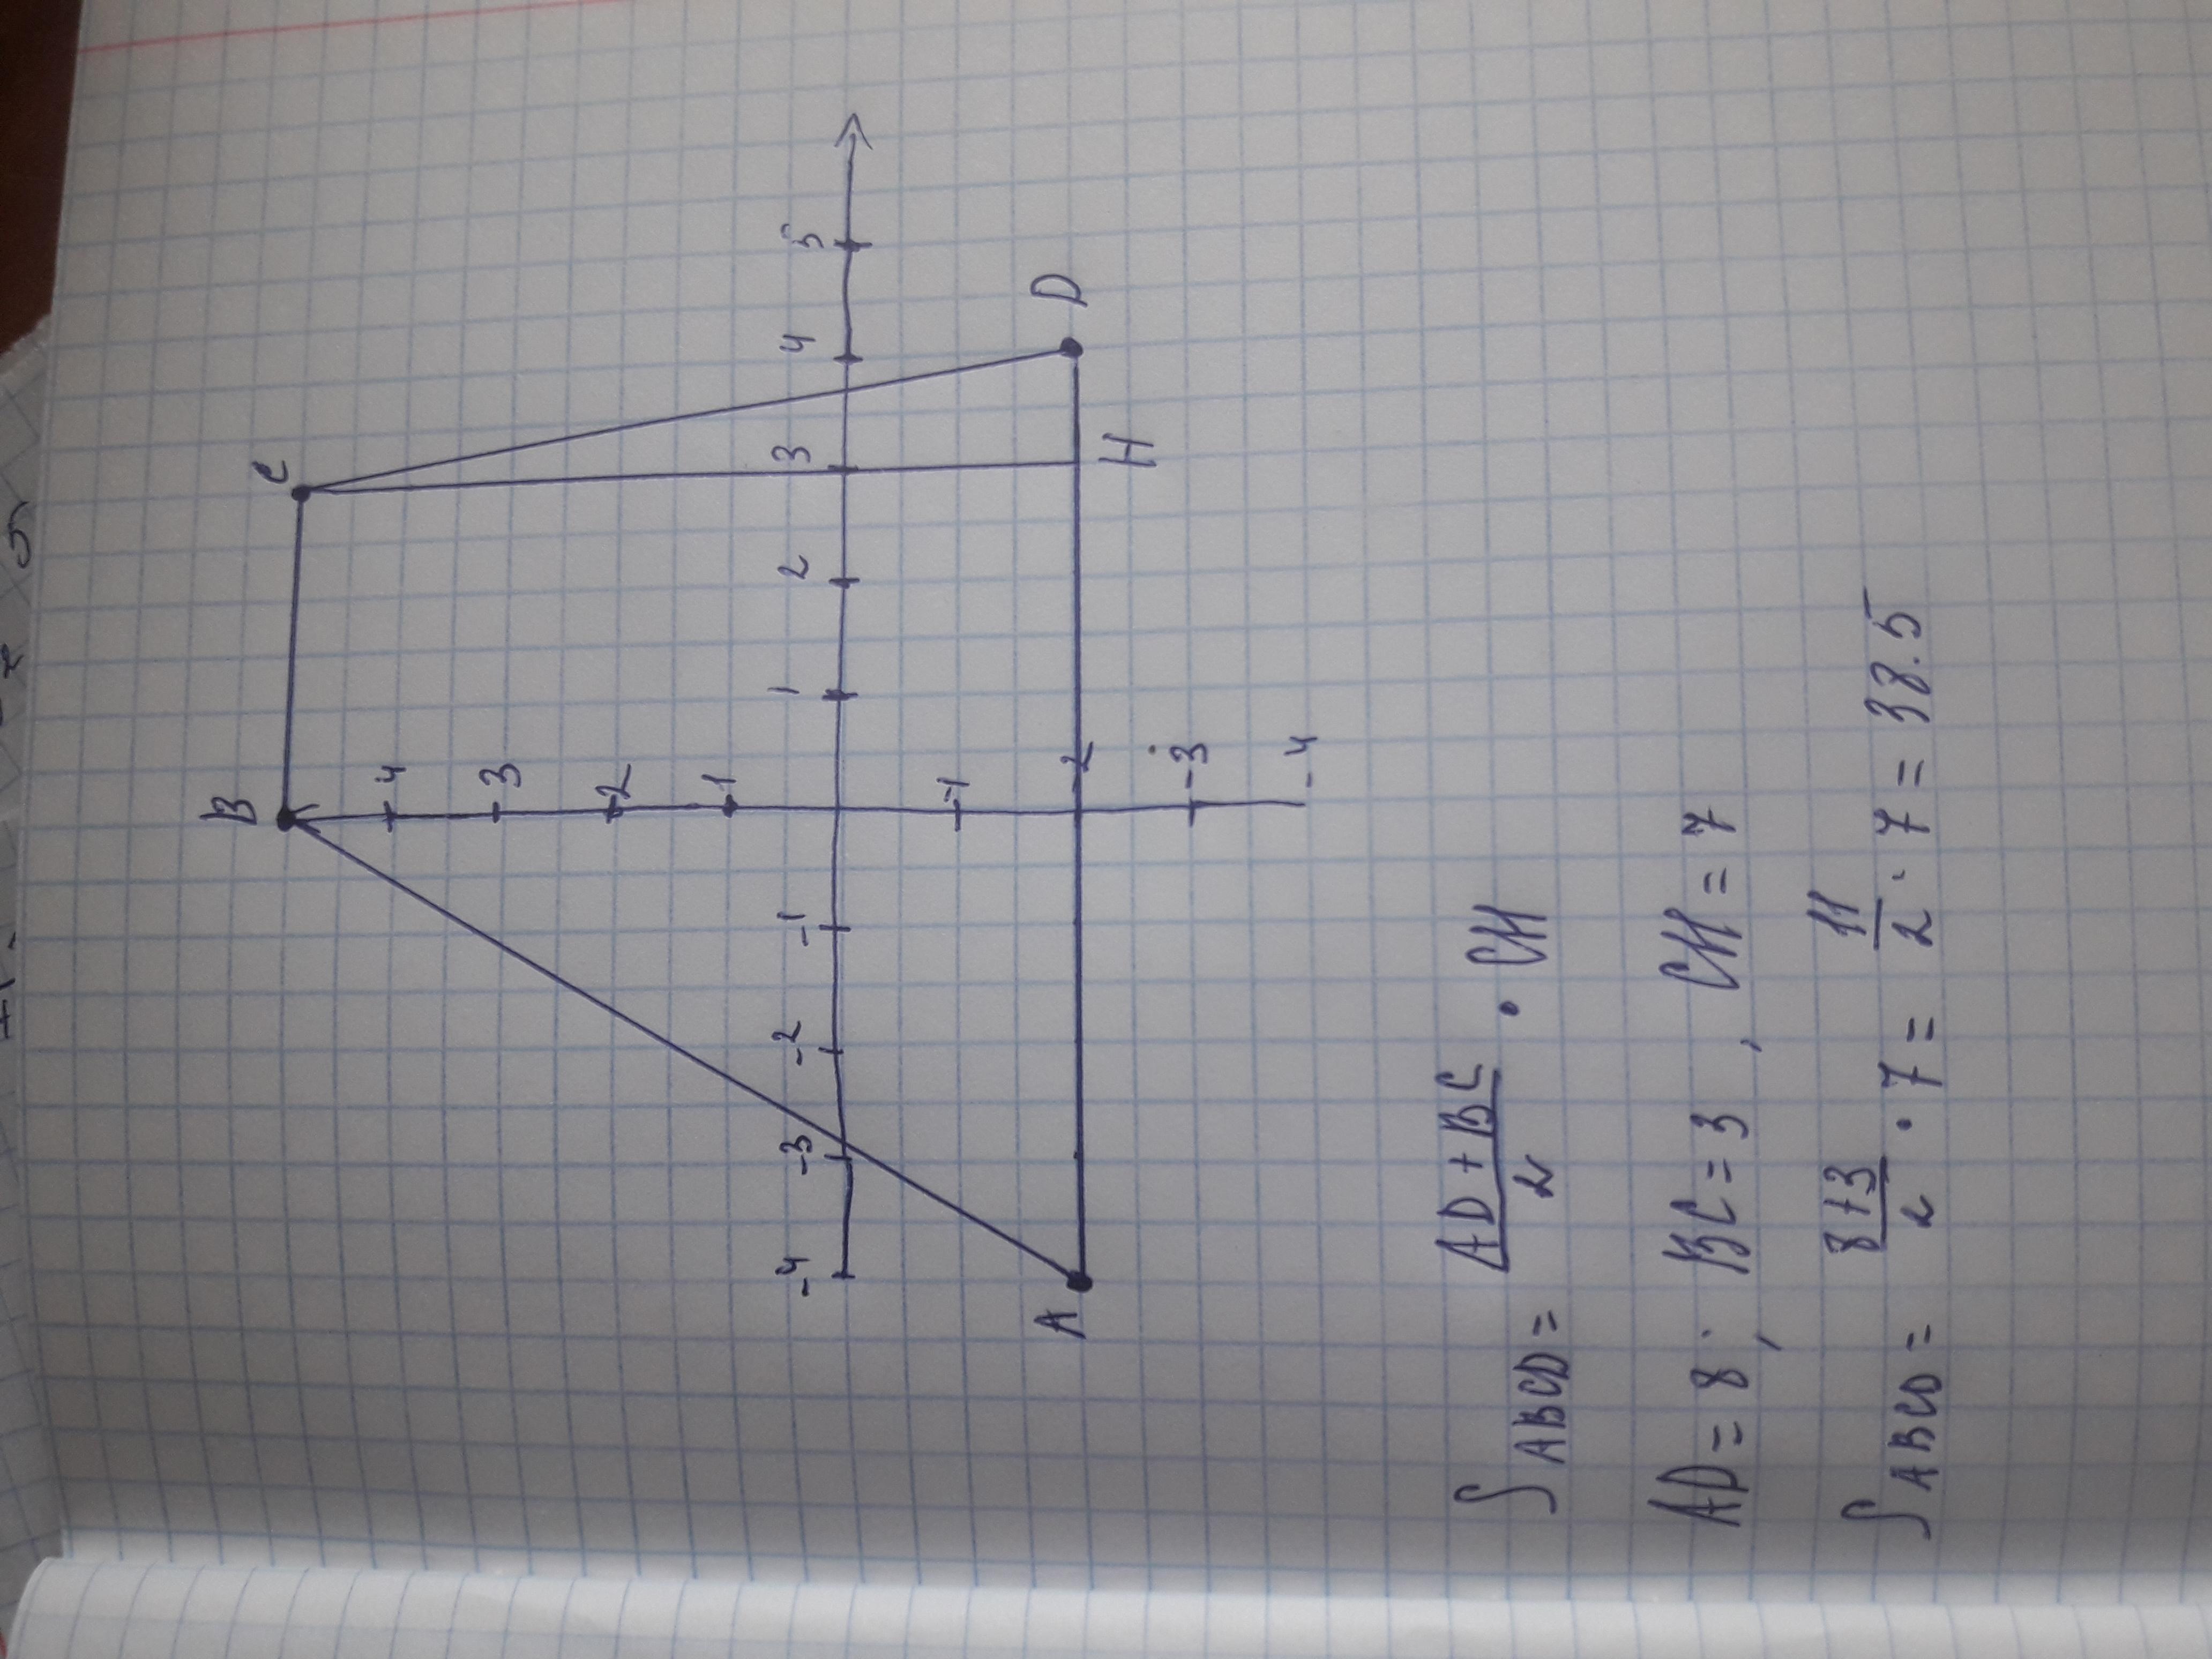 B
C
4
3
2
1
-4 -3 -2 -1 1 2 3 4 5
-1
-2
A D
H
-3
-4
S ABCD = AD + BC / 2 · CH
AD = 8; BC = 3, CH = 7
S ABCD = 8+3 / 2 · 7 = 11 / 2 · 7 = 38.5